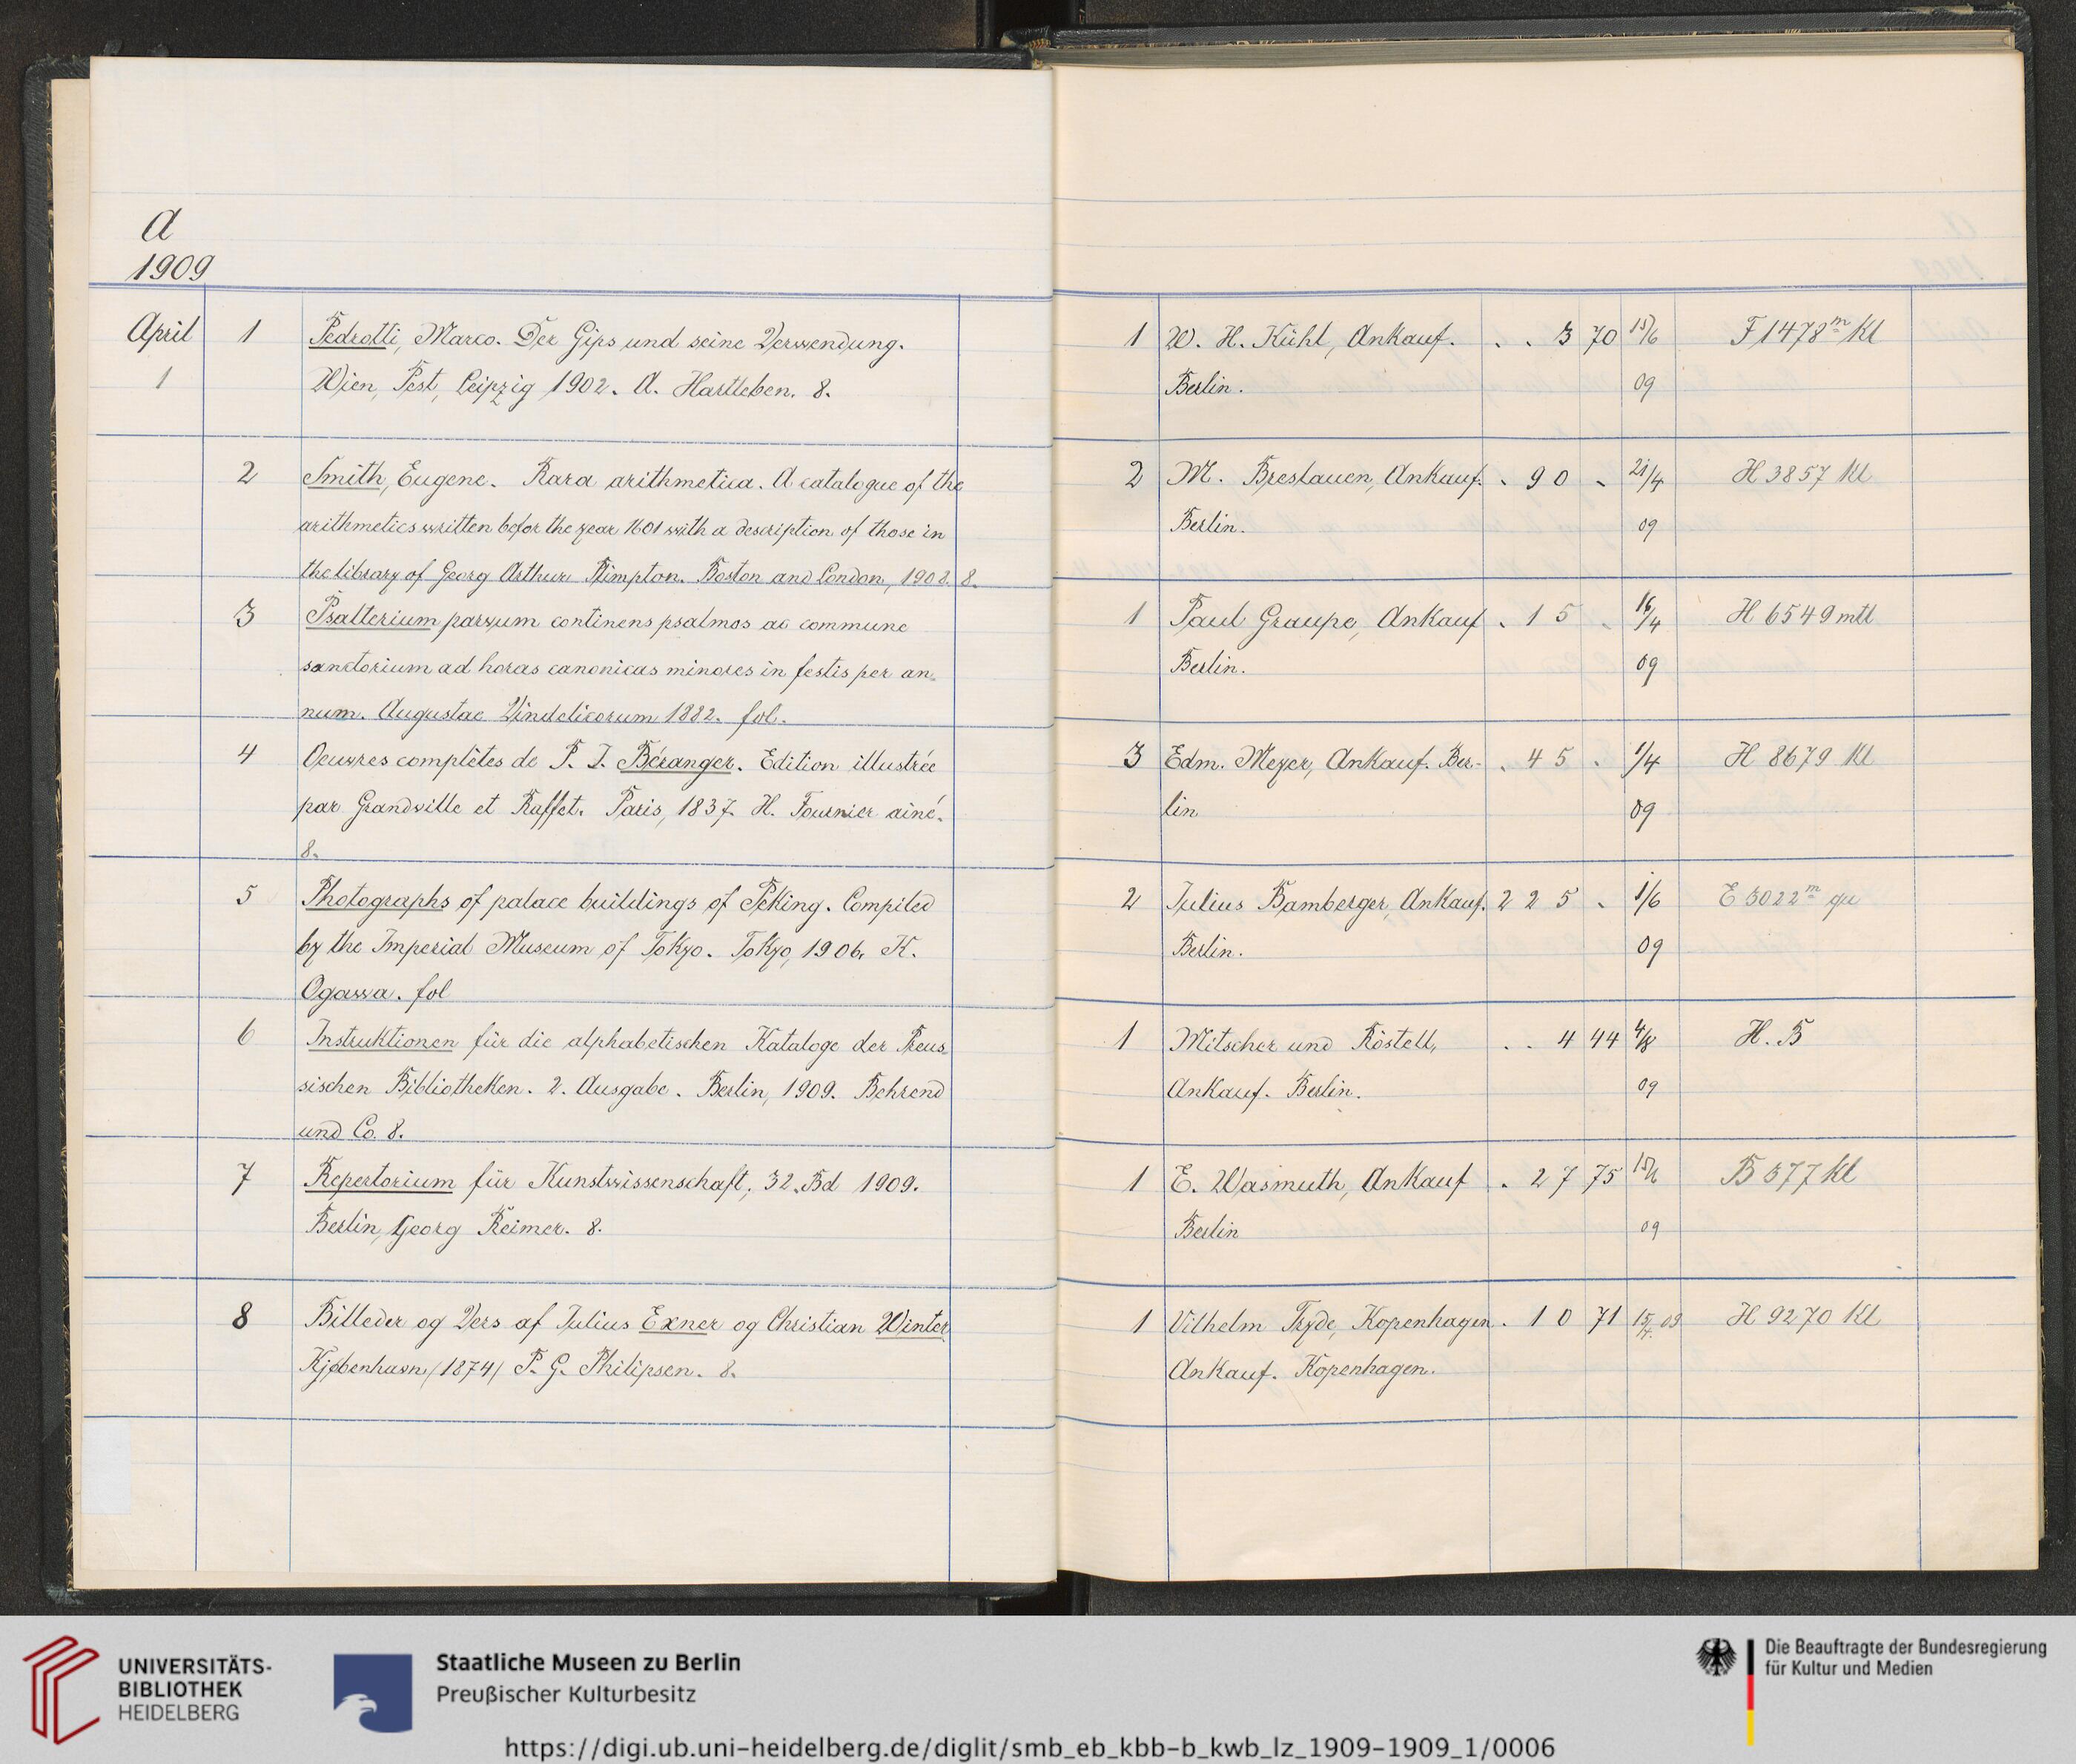 A
1909
April 1 Pedrotti, Marco. Der Gips und seine Verwendung.
1 Wien, Pest, Leipzig 1902. A. Hartleben. 8.
2 Smith, Eugene. Rara arithmetica. A catalogue of the
arithmetics written befor the year 1601 with a description of those in
the library of Georg Arthur Plimpton. Boston and London, 1908. 8.
3 Psalterium parvum continens psalmos ac commune
sanctorium ad horas canonicas minores in festis per an-
num. Augustae Vindelicorum 1882. fol.
4 Oeuvres complètes de P. J. Béranger. Edition illustrée
par Grandville et Raffet. Paris, 1837. H. Fournier ainé.
8.
5 Photographs of palace buildings of Peking. Compiled
by the Imperial Museum of Tokyo. Tokyo, 1906. K.
Ogawa. fol
6 Instruktionen für die alphabetischen Kataloge der Preus-
sischen Bibliotheken. 2. Ausgabe. Berlin, 1909. Behrend
und Co. 8.
7 Repertorium für Kunstwissenschaft, 32. Bd 1909.
Berlin, Georg Reimer. 8.
8 Billeder og Vers af Julius Exner og Christian Winter
Kjøbenhavn (1874) P. G. Philipsen. 8.
1 W. H. Kühl, Ankauf. . . 3 70 15/6 F 1478 m Kl
Berlin. 09
2 M. Breslauer, Ankauf. . 90 - 21/4 H 3857 Kl
Berlin. 09
1 Paul Graupe, Ankauf . 15 - 16/4 H 6549 mtl
Berlin. 09
3 Edm. Meyer, Ankauf. Ber- . 45 - 1/4 H 8679 Kl
lin 09
2 Julius Bamberger, Ankauf. 225 - 1/6 E 5022 m gu
Berlin. 09
1 Mitscher und Röstell, . . 4 44 4/8 H. B
Ankauf. Berlin. 09
1 E. Wasmuth, Ankauf . 27 75 B 577 Kl
Berlin 09
1 Vilhelm Tryde, Kopenhagen . 10 71 15/4. 09 H 9270 Kl
Ankauf. Kopenhagen.
UNIVERSITÄTS-
BIBLIOTHEK
HEIDELBERG
Staatliche Museen zu Berlin
Preußischer Kulturbesitz
Die Beauftragte der Bundesregierung
für Kultur und Medien
https://digi.ub.uni-heidelberg.de/diglit/smb_eb_kbb-b_kwb_lz_1909-1909_1/0006